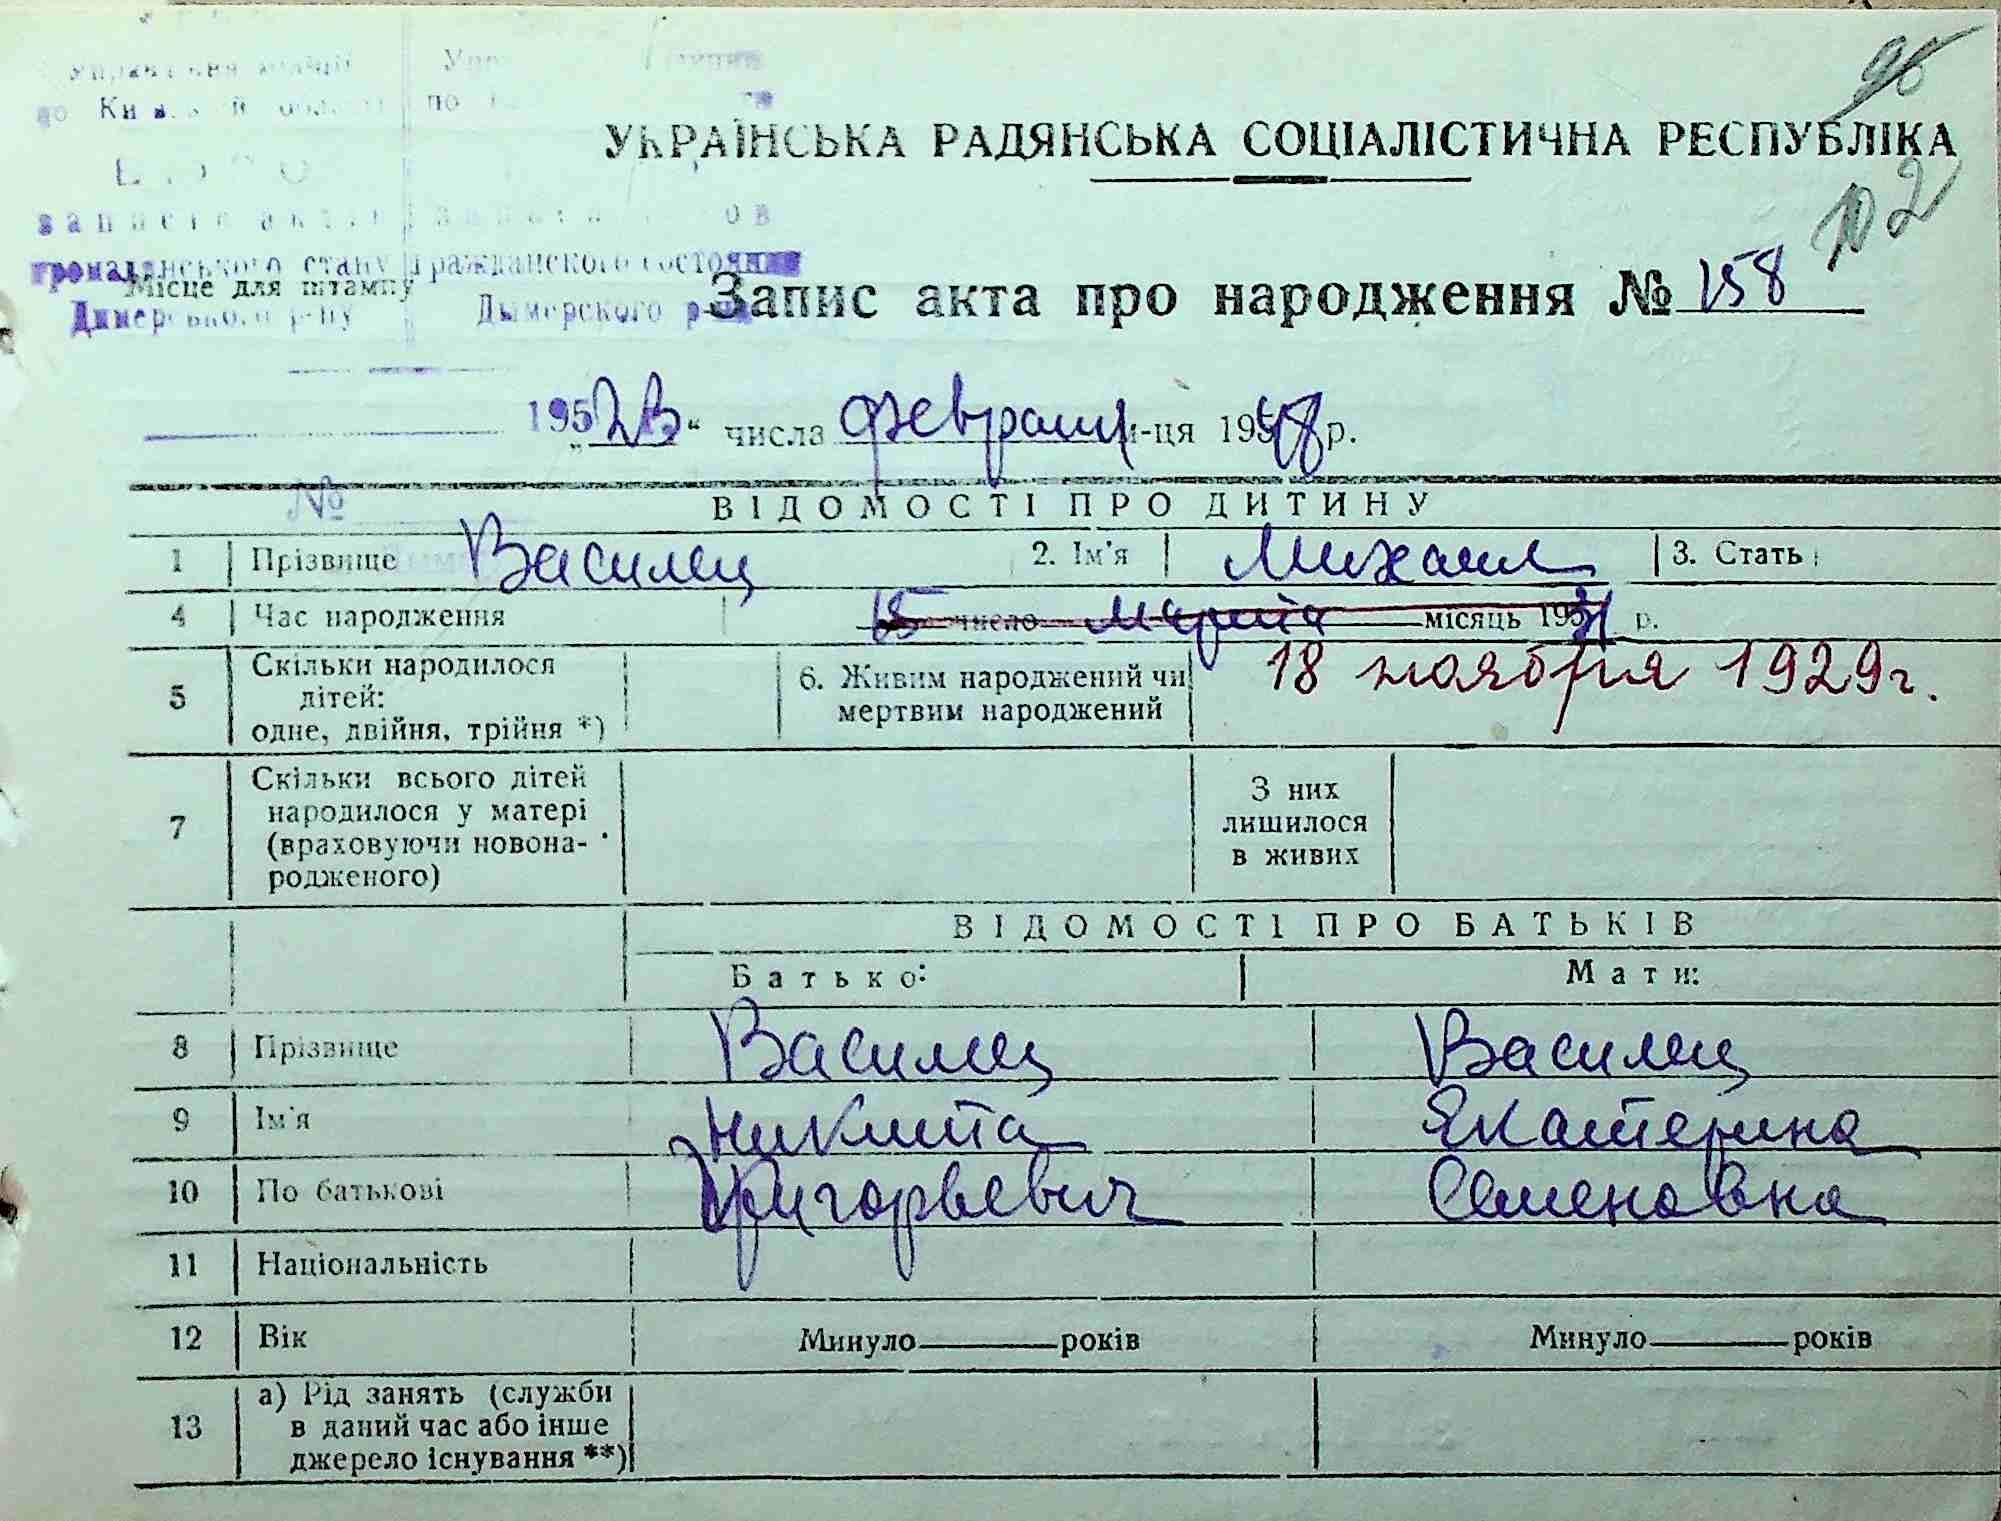 96
УКРАЇНСЬКА РАДЯНСЬКА СОЦІАЛІСТИЧНА РЕСПУБЛІКА
102
записів актів
громадянського стану гражданского состояния
Місце для штампу
Димерського р-ну Дымерского р-на
Запис акта про народження № 158
195 „23“ числа февраля м-ця 1948 р.
№
ВІДОМОСТІ ПРО ДИТИНУ
1 Прізвище Василец 2. Ім'я Михаил 3. Стать
4 Час народження 15 число марта місяць 1931 р.
18 ноября 1929 г.
5 Скільки народилося дітей: одне, двійня, трійня *) 6. Живим народжений чи мертвим народжений
7 Скільки всього дітей народилося у матері (враховуючи новонародженого) З них лишилося в живих
ВІДОМОСТІ ПРО БАТЬКІВ
Батько: Мати:
8 Прізвище Василец Василец
9 Ім'я Никита Екатерина
10 По батькові Григорьевич Семеновна
11 Національність
12 Вік Минуло років Минуло років
13 а) Рід занять (служби в даний час або інше джерело існування **)